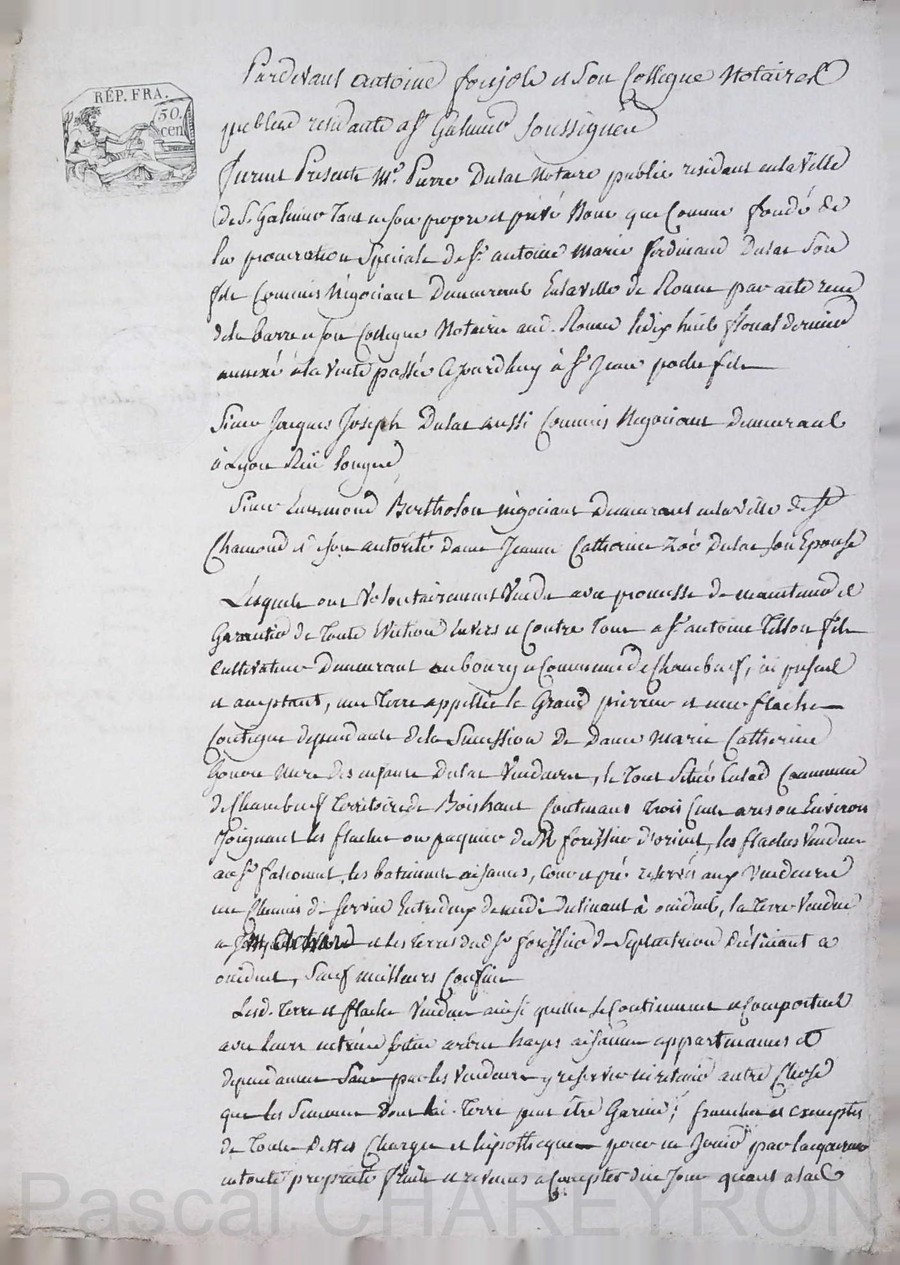 RÉP. FRA.
50.
cen
Pardevant antoine et son Collegue Notaires
publics residants a St Galmier soussignés
furent Presents Mr. Pierre Dulac Notaire public residant en la ville
de St Galmier tant en son propre et privé Nom que Comme fondé de
la procuration Speciale de Sr. antoine Marie ferdinand Dulac son
fils Commis Négociant Demeurant En la ville de Rouen par acte recu
dela barre et son Collegue Notaires aud. Rouen le dix huit floreal dernier
annexé à la vente passée Cejourdhuy à Sr. Jean fils
Sieur Jacques Joseph Dulac aussi Commis Negociant demeurant
à Lyon Rüe longue
Sieur Bertholon négociant Demeurant en la ville de St
Chamond et de son autorité dame Jeanne Catherine Zoé Dulac son Epouse
Lesquels ont volontairement Vendu avec promesse de maintenue et
Garantie de toute Eviction Envers et Contre tous a Sr. antoine fils
Cultivateur Demeurant au bourg et Commune de Chambœuf, ici présent
et acceptant, une terre appellée le Grand pierreux et une flache
Contigue dependante de la Succession de Dame Marie Catherine
mere des enfans Dulac Vendeurs, le tout Situé En lad. Commune
de Chambœuf Territoire de Boishaut Contenant trois Cent ares ou Environ
Joignant les flaches ou paquier de M. forissier d'orient, les flaches vendues
au Sr. les batiments aisances, cour et pré reservés aux Vendeurs
un Chemin de service Entredeux de midi declinant à occident, la Terre Vendue
a et les terres dud. Sr. forissier de Septentrion déclinant a
occident, Sauf meilleurs Confins
Lesd. Terre et flache Vendues ainsi quelles se Contiennent et Comportent
avec leurs entrées sorties arbres hayes aisances appartenances et
dependances Sans par les Vendeurs y reserver ni retenir autre Chose
que les Semences dont lad. Terre peut être Garnie; franches et exemptes
de Toutes dettes Charges et hipotheques pour en Jouir par lacquereur
en toute propriété fruits et revenus a Compter du Jour quant a la
Pascal CHAREYRON